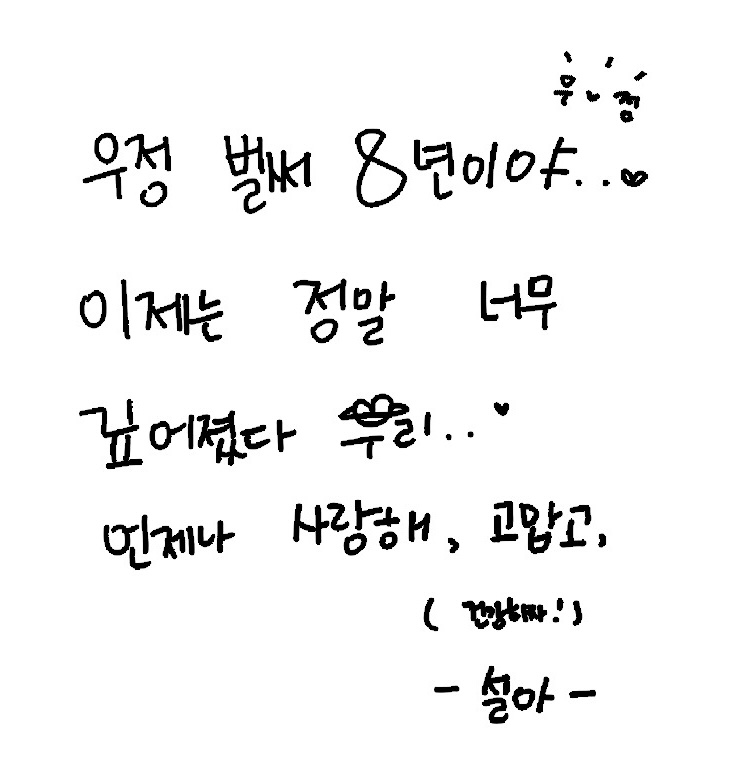 우♥정
우정 벌써 8년이야..♥
이제는 정말 너무
깊어졌다 우리..♥
언제나 사랑해, 고맙고,
(건강하자!)
- 설아 -